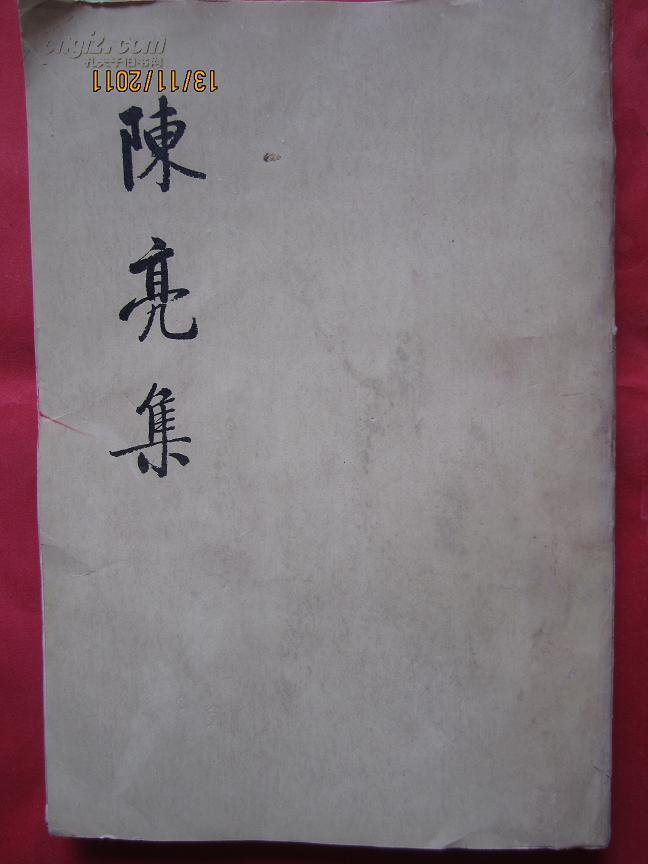 孔夫子旧书网
13/11/2011
陳亮集